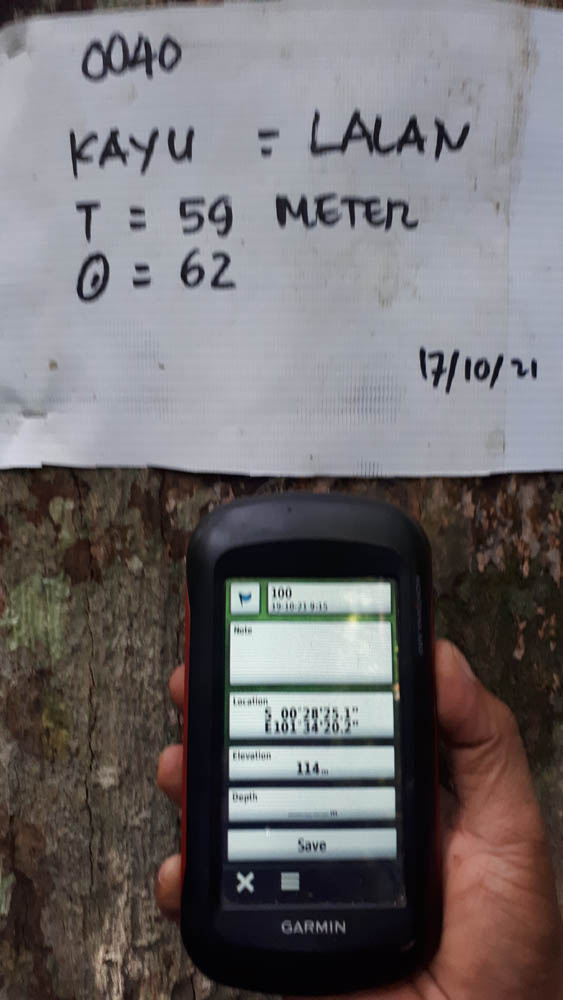 0040
KAYU = LALAN
T = 59 METER
Ø = 62
17/10/21
100
19-10-21 9:15
Note
Location
S 00°28'25.1"
E101°34'20.2"
Elevation
114m
Depth
______m
Save
GARMIN